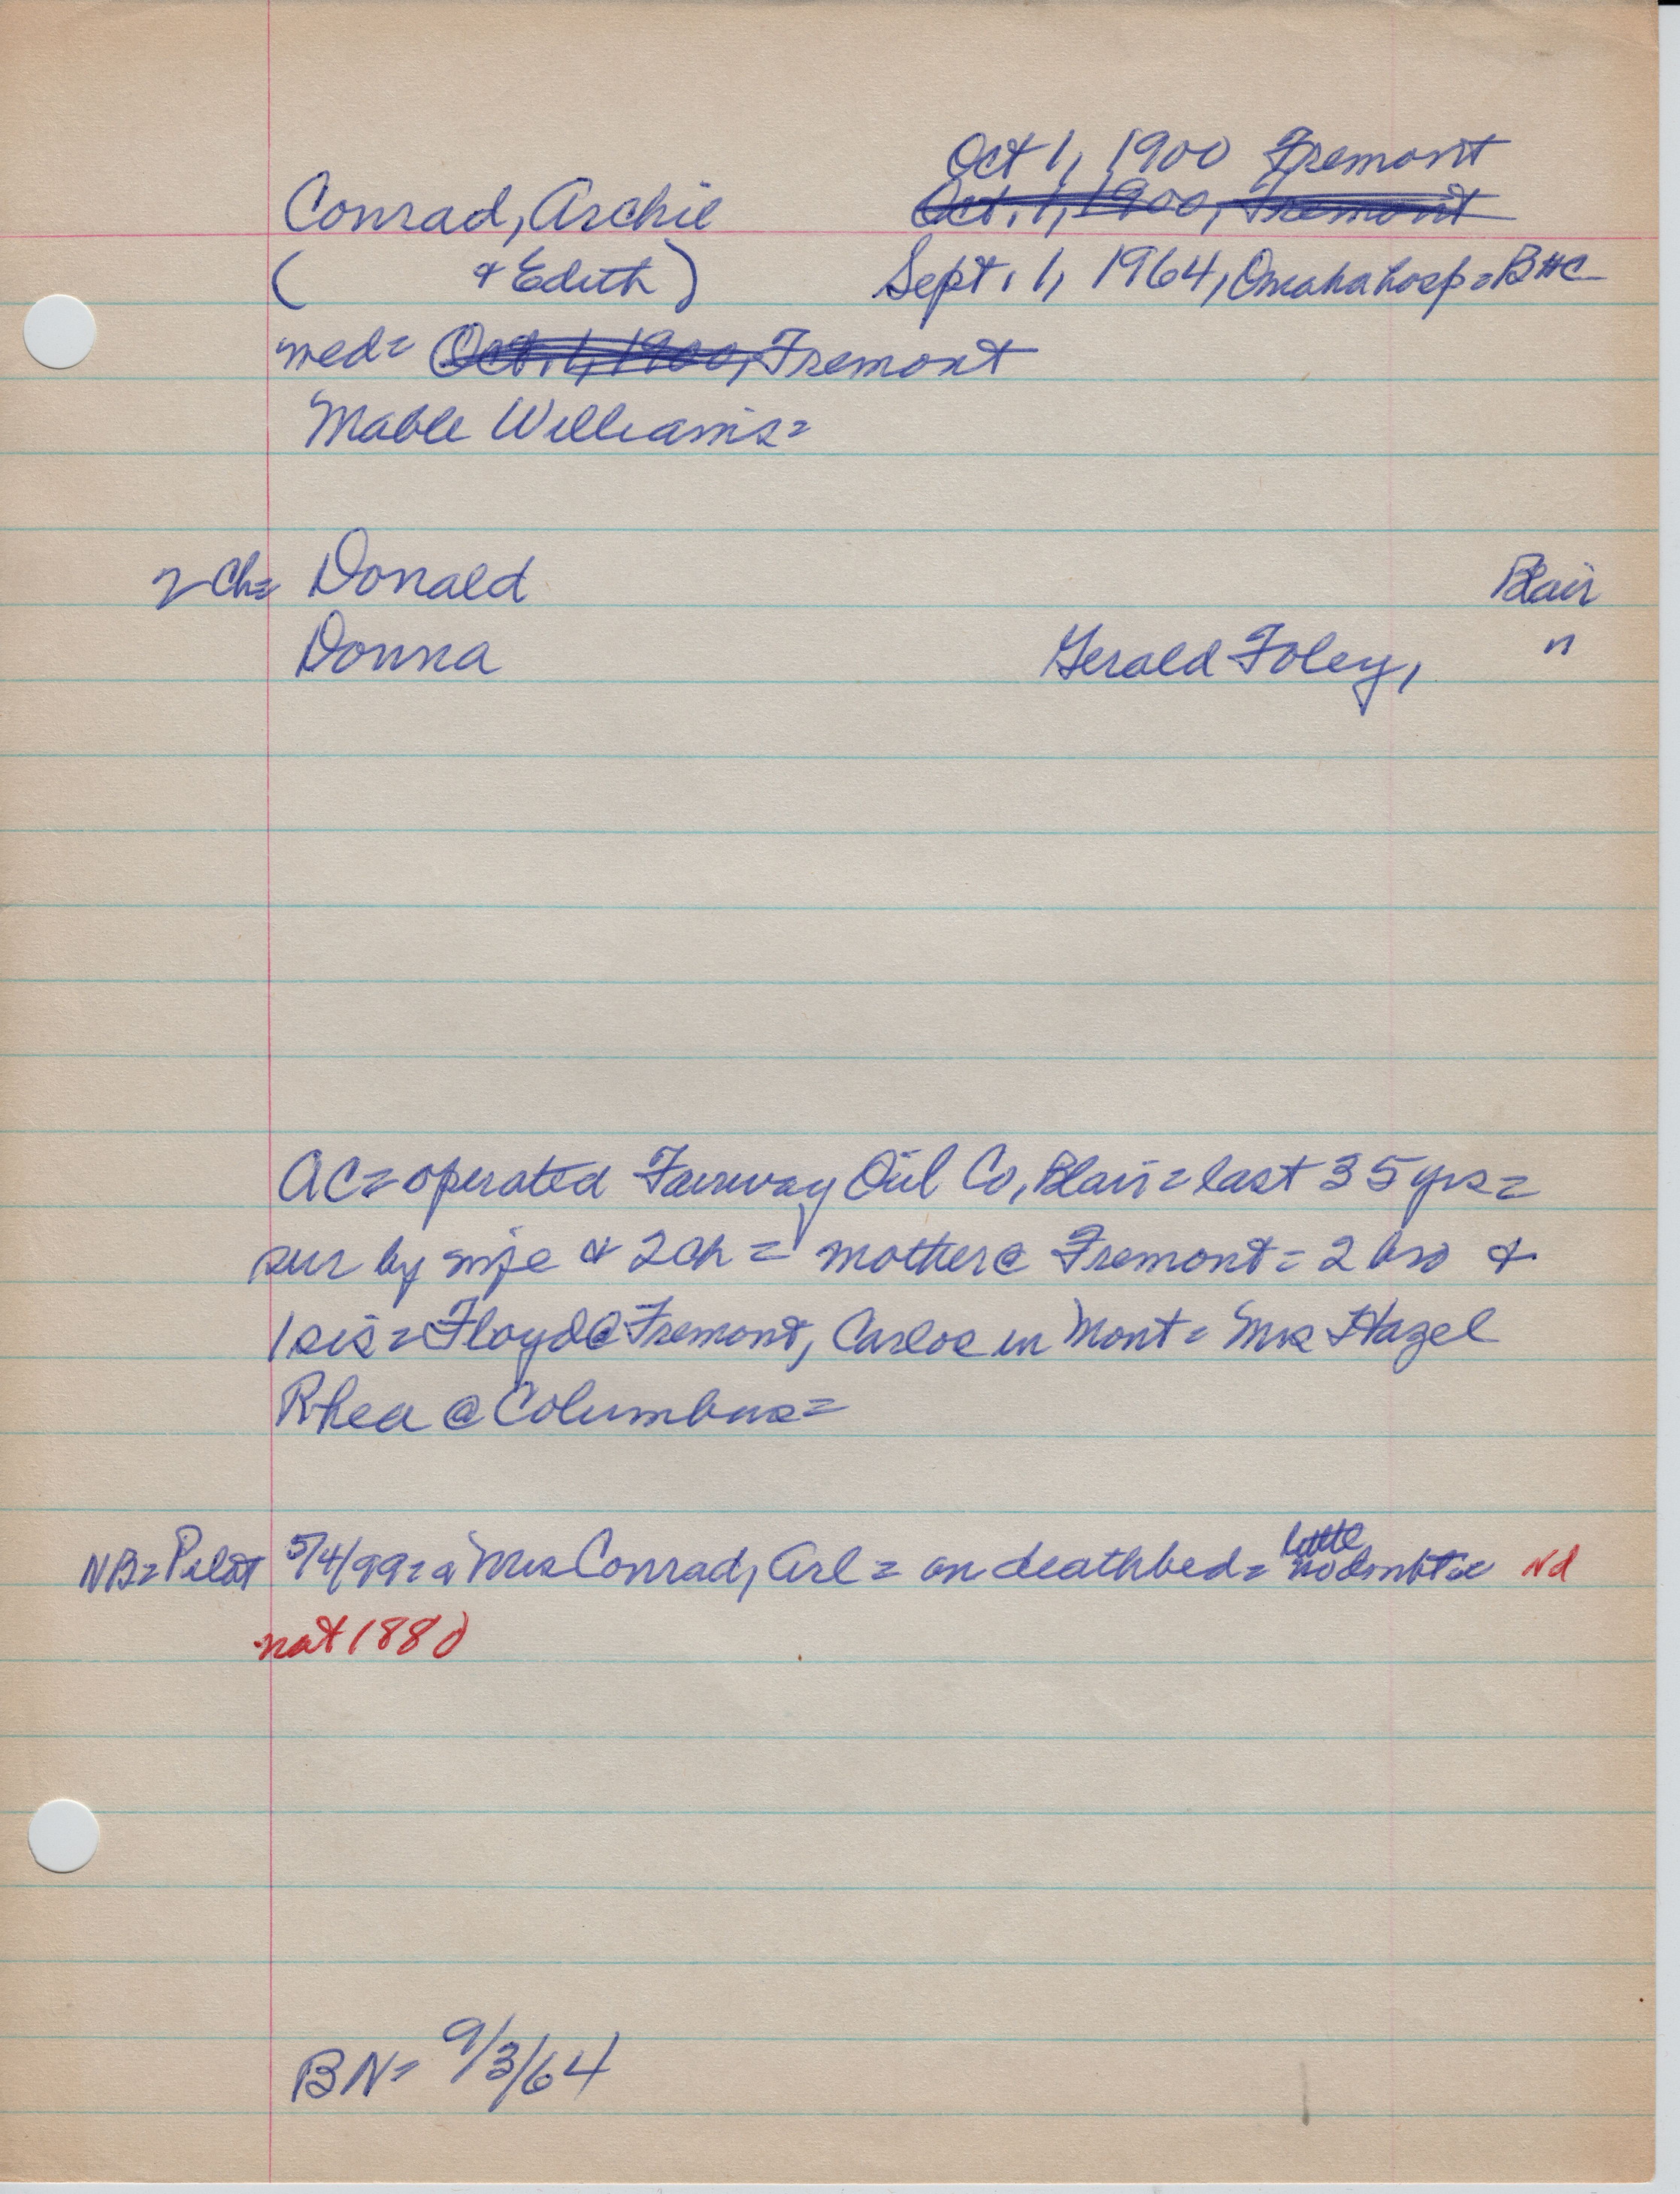 Oct 1, 1900 Fremont
Conrad, Archie Oct. 1, 1900, Fremont
( & Edith) Sept. 1, 1964, Omaha hosp = B#C
med= Oct. 1, 1900, Fremont
Mable Williams=
2 Ch= Donald Blair
Donna Gerald Foley, "
AC= operated Fairway Oil Co, Blair = last 35 yrs=
sur by wife & 2 ch = mother @ Fremont = 2 bro &
1 sis = Floyd @ Fremont, Carlos in Mont = Mrs Hazel
Rhea @ Columbus=
little
NB= Pilot 5/4/99= a Mrs Conrad, Arl = on deathbed= no doubt Nd
nat 1880
BN= 9/3/64